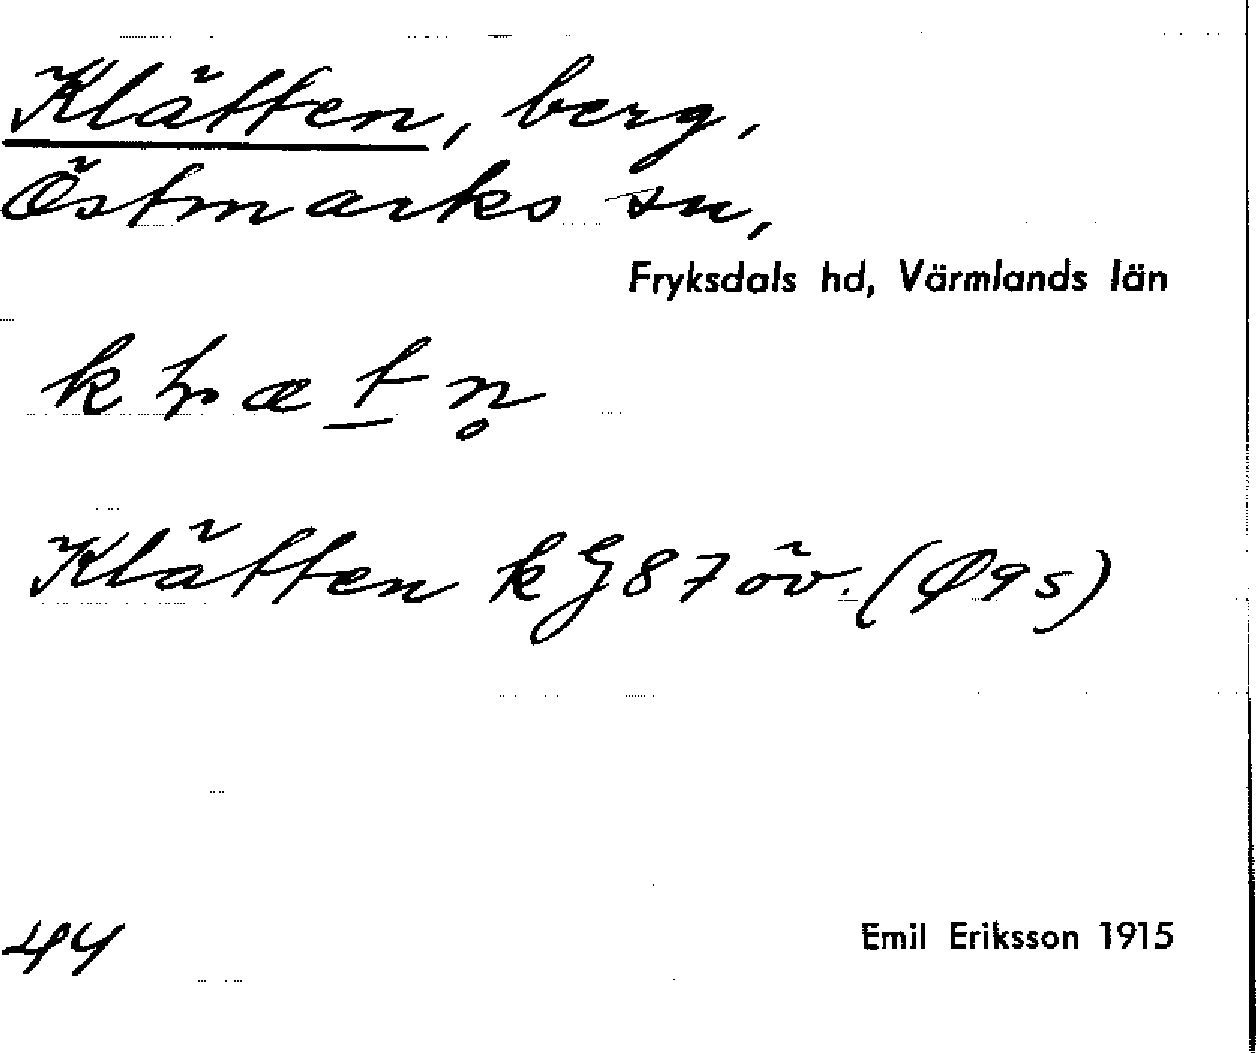 Klätten, berg,
Östmarks sn,
Fryksdals hd, Värmlands län
Klätten kG87öv. (Ø9s)
44
Emil Eriksson 1915